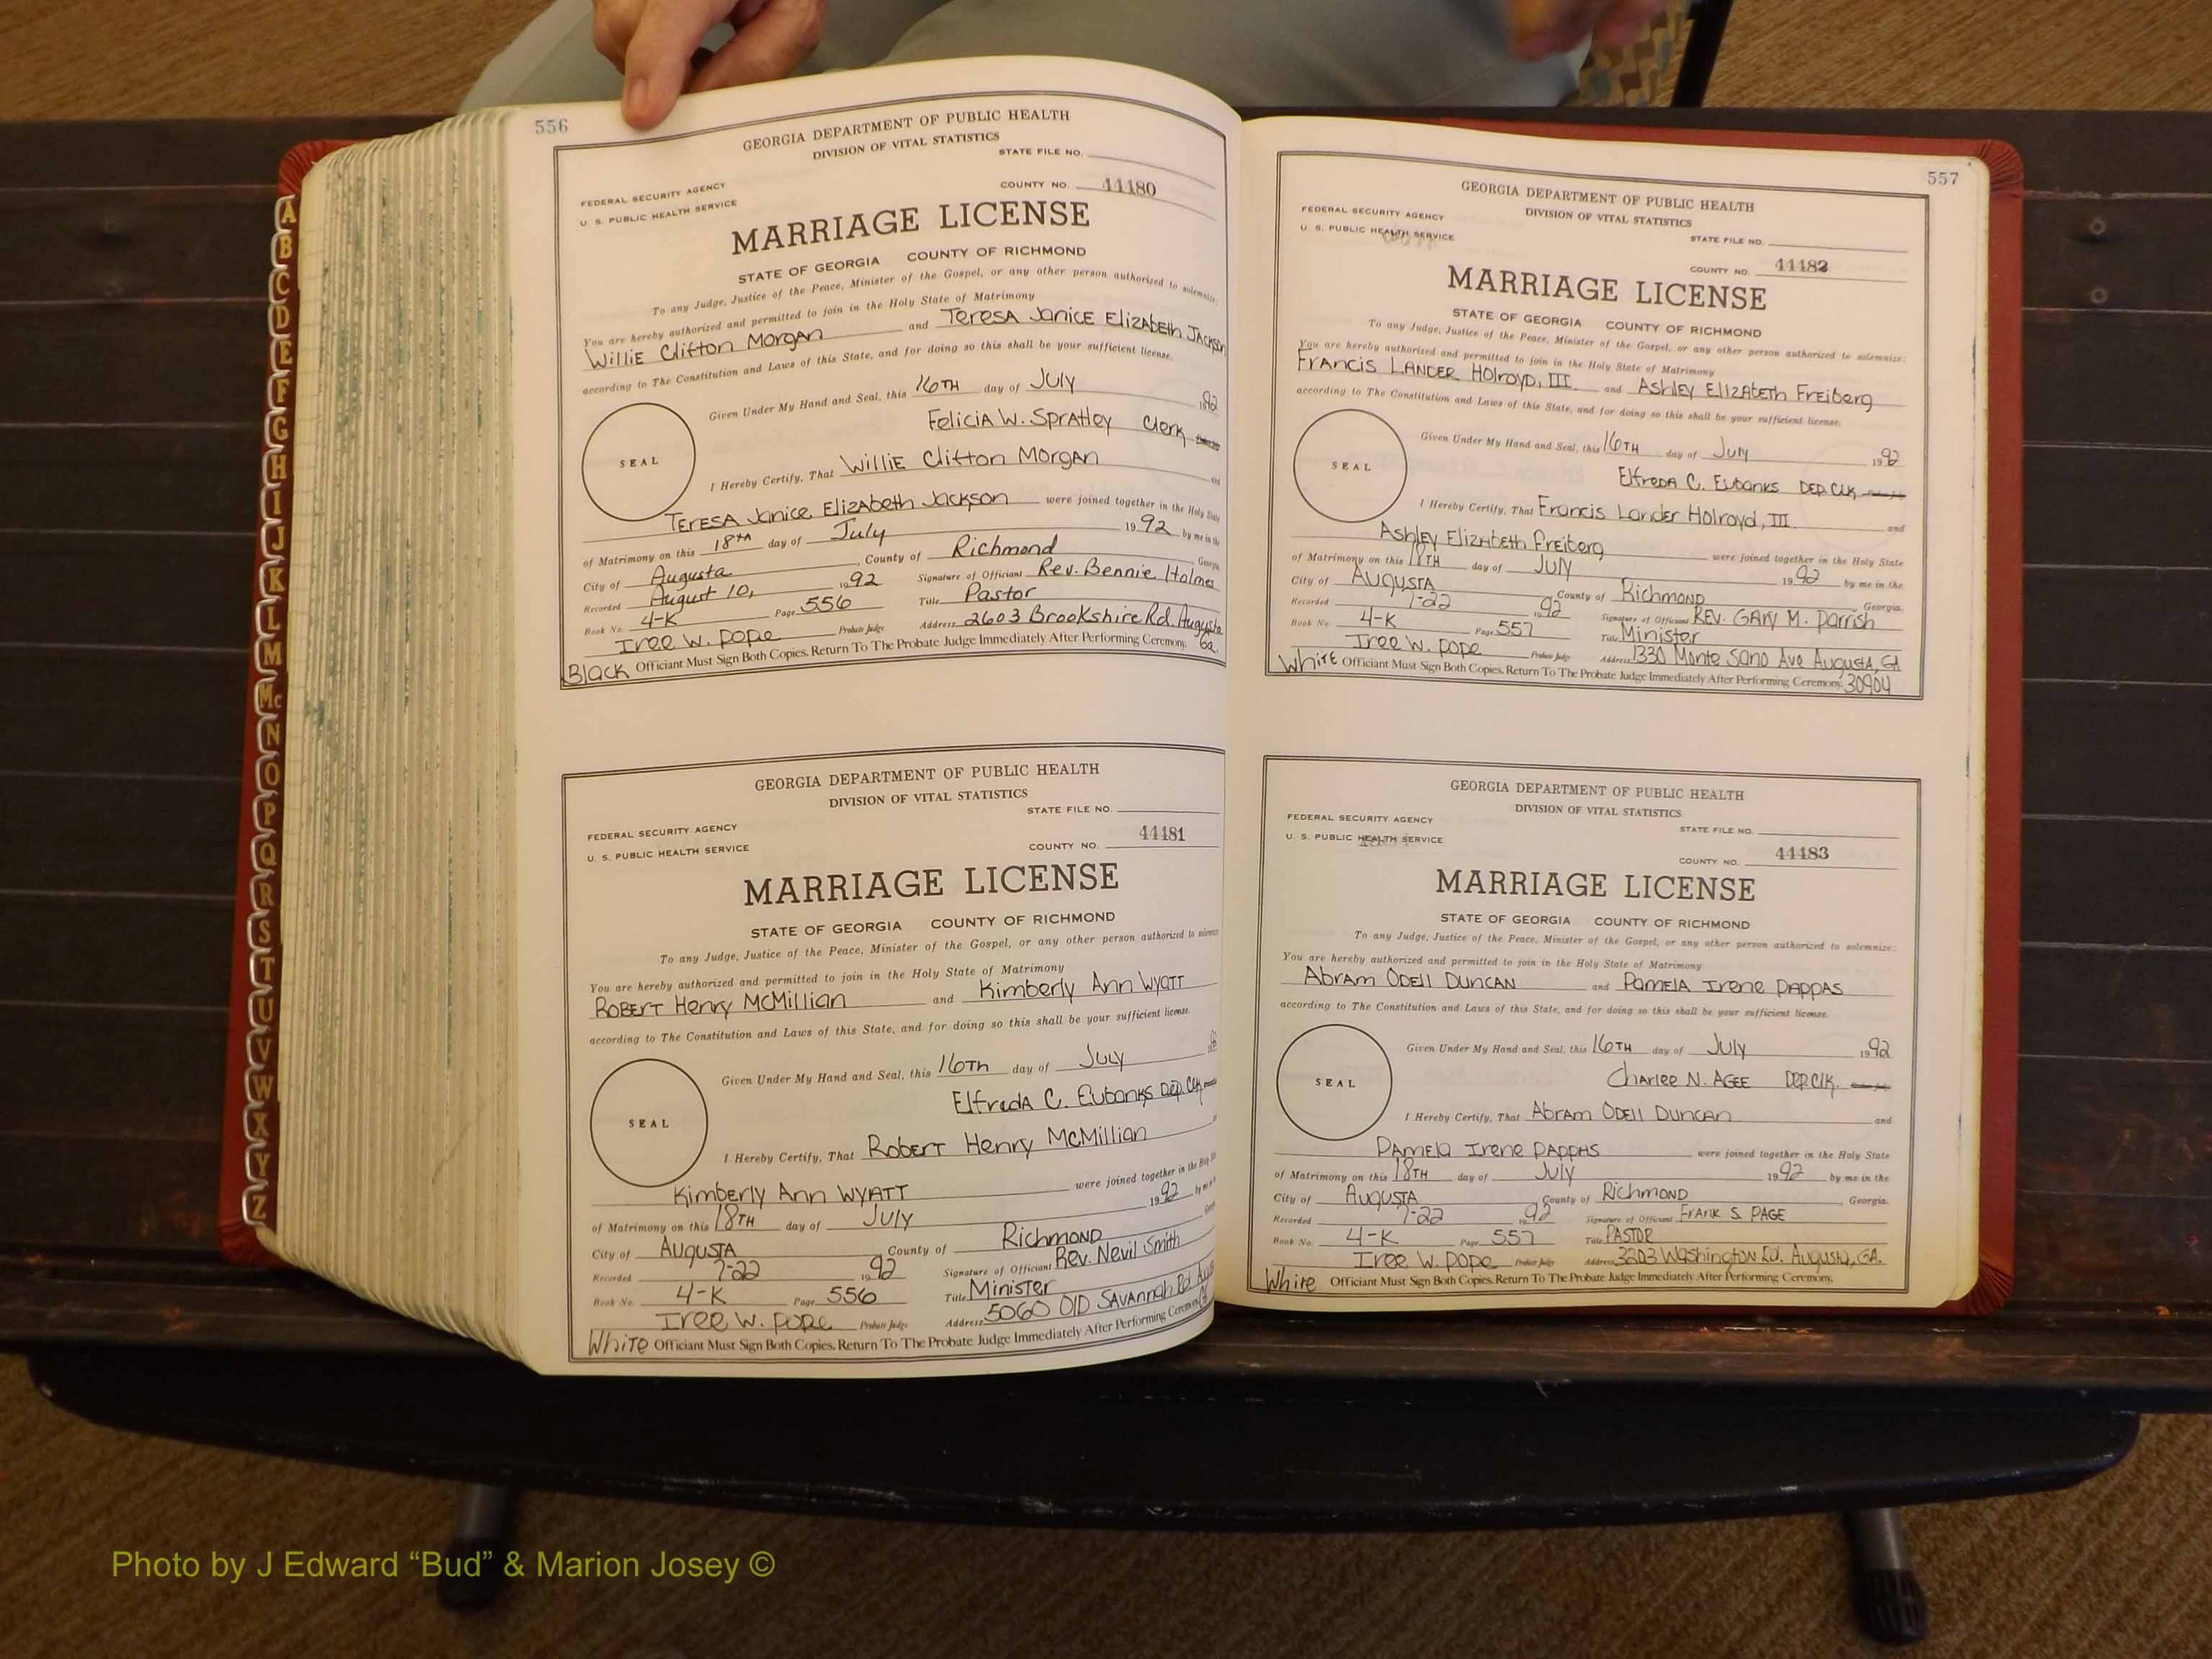 556
GEORGIA DEPARTMENT OF PUBLIC HEALTH
DIVISION OF VITAL STATISTICS
STATE FILE NO.
FEDERAL SECURITY AGENCY
U. S. PUBLIC HEALTH SERVICE
COUNTY NO. 44480
MARRIAGE LICENSE
STATE OF GEORGIA COUNTY OF RICHMOND
To any Judge, Justice of the Peace, Minister of the Gospel, or any other person authorized to solemnize:
You are hereby authorized and permitted to join in the Holy State of Matrimony
Willie Clifton Morgan and Teresa Janice Elizabeth Jackson
according to The Constitution and Laws of this State, and for doing so this shall be your sufficient license.
Given Under My Hand and Seal, this 16TH day of July 1992
Felicia W. Spratley Clerk
SEAL
I Hereby Certify, That Willie Clifton Morgan and
Teresa Janice Elizabeth Jackson were joined together in the Holy State
of Matrimony on this 18th day of July 1992 by me in the
City of Augusta, County of Richmond Georgia
Recorded August 10, 1992 Signature of Officiant Rev. Bennie Holmes
Book No. 4-K Page 556 Title Pastor
Iree W. Pope Probate Judge Address 2603 Brookshire Rd. Augusta Ga.
Black Officiant Must Sign Both Copies. Return To The Probate Judge Immediately After Performing Ceremony.
GEORGIA DEPARTMENT OF PUBLIC HEALTH
DIVISION OF VITAL STATISTICS
STATE FILE NO.
FEDERAL SECURITY AGENCY
U. S. PUBLIC HEALTH SERVICE
COUNTY NO. 44481
MARRIAGE LICENSE
STATE OF GEORGIA COUNTY OF RICHMOND
To any Judge, Justice of the Peace, Minister of the Gospel, or any other person authorized to solemnize
You are hereby authorized and permitted to join in the Holy State of Matrimony
Robert Henry McMillian and Kimberly Ann Wyatt
according to The Constitution and Laws of this State, and for doing so this shall be your sufficient license.
Given Under My Hand and Seal, this 16TH day of July
Elfreda C. Eubanks Dep. Clk
SEAL
I Hereby Certify, That Robert Henry McMillian
Kimberly Ann Wyatt were joined together in the Holy
of Matrimony on this 18TH day of July 1992 by me in
City of Augusta County of Richmond
Recorded 7-22 1992 Signature of Officiant Rev. Nevil Smith
Book No. 4-K Page 556 Title Minister
Iree W. Pope Probate Judge Address 5060 Old Savannah Rd
White Officiant Must Sign Both Copies. Return To The Probate Judge Immediately After Performing Ceremony.
557
GEORGIA DEPARTMENT OF PUBLIC HEALTH
DIVISION OF VITAL STATISTICS
FEDERAL SECURITY AGENCY
U. S. PUBLIC HEALTH SERVICE
STATE FILE NO.
COUNTY NO. 44482
MARRIAGE LICENSE
STATE OF GEORGIA COUNTY OF RICHMOND
To any Judge, Justice of the Peace, Minister of the Gospel, or any other person authorized to solemnize:
You are hereby authorized and permitted to join in the Holy State of Matrimony
Francis Lander Holroyd, III and Ashley Elizabeth Freiberg
according to The Constitution and Laws of this State, and for doing so this shall be your sufficient license.
Given Under My Hand and Seal, this 16TH day of July 1992
Elfreda C. Eubanks DEP. Clk
SEAL
I Hereby Certify, That Francis Lander Holroyd, III and
Ashley Elizabeth Freiberg were joined together in the Holy State
of Matrimony on this 18TH day of July 1992 by me in the
City of Augusta County of Richmond, Georgia.
Recorded 7-22 1992 Signature of Officiant Rev. Gary M. Parrish
Book No. 4-K Page 557 Title Minister
Iree W. Pope Probate Judge Address 1330 Monte Sano Ave Augusta, GA
White Officiant Must Sign Both Copies. Return To The Probate Judge Immediately After Performing Ceremony. 30904
GEORGIA DEPARTMENT OF PUBLIC HEALTH
DIVISION OF VITAL STATISTICS
FEDERAL SECURITY AGENCY
U. S. PUBLIC HEALTH SERVICE
STATE FILE NO.
COUNTY NO. 44483
MARRIAGE LICENSE
STATE OF GEORGIA COUNTY OF RICHMOND
To any Judge, Justice of the Peace, Minister of the Gospel, or any other person authorized to solemnize:
You are hereby authorized and permitted to join in the Holy State of Matrimony
Abram Odell Duncan and Pamela Irene Pappas
according to The Constitution and Laws of this State, and for doing so this shall be your sufficient license.
Given Under My Hand and Seal, this 16TH day of July 1992
Charlee N. Agee DEP. Clk.
SEAL
I Hereby Certify, That Abram Odell Duncan and
Pamela Irene Pappas were joined together in the Holy State
of Matrimony on this 18TH day of July 1992 by me in the
City of Augusta County of Richmond, Georgia.
Recorded 7-22 1992 Signature of Officiant Frank S. Page
Book No. 4-K Page 557 Title Pastor
Iree W. Pope Probate Judge Address 3203 Washington Rd. Augusta, GA.
White Officiant Must Sign Both Copies. Return To The Probate Judge Immediately After Performing Ceremony.
A
B
C
D
E
F
G
H
I
J
K
L
M
Mc
N
O
P
Q
R
S
T
U
V
W
X
Y
Z
Photo by J Edward “Bud” & Marion Josey ©